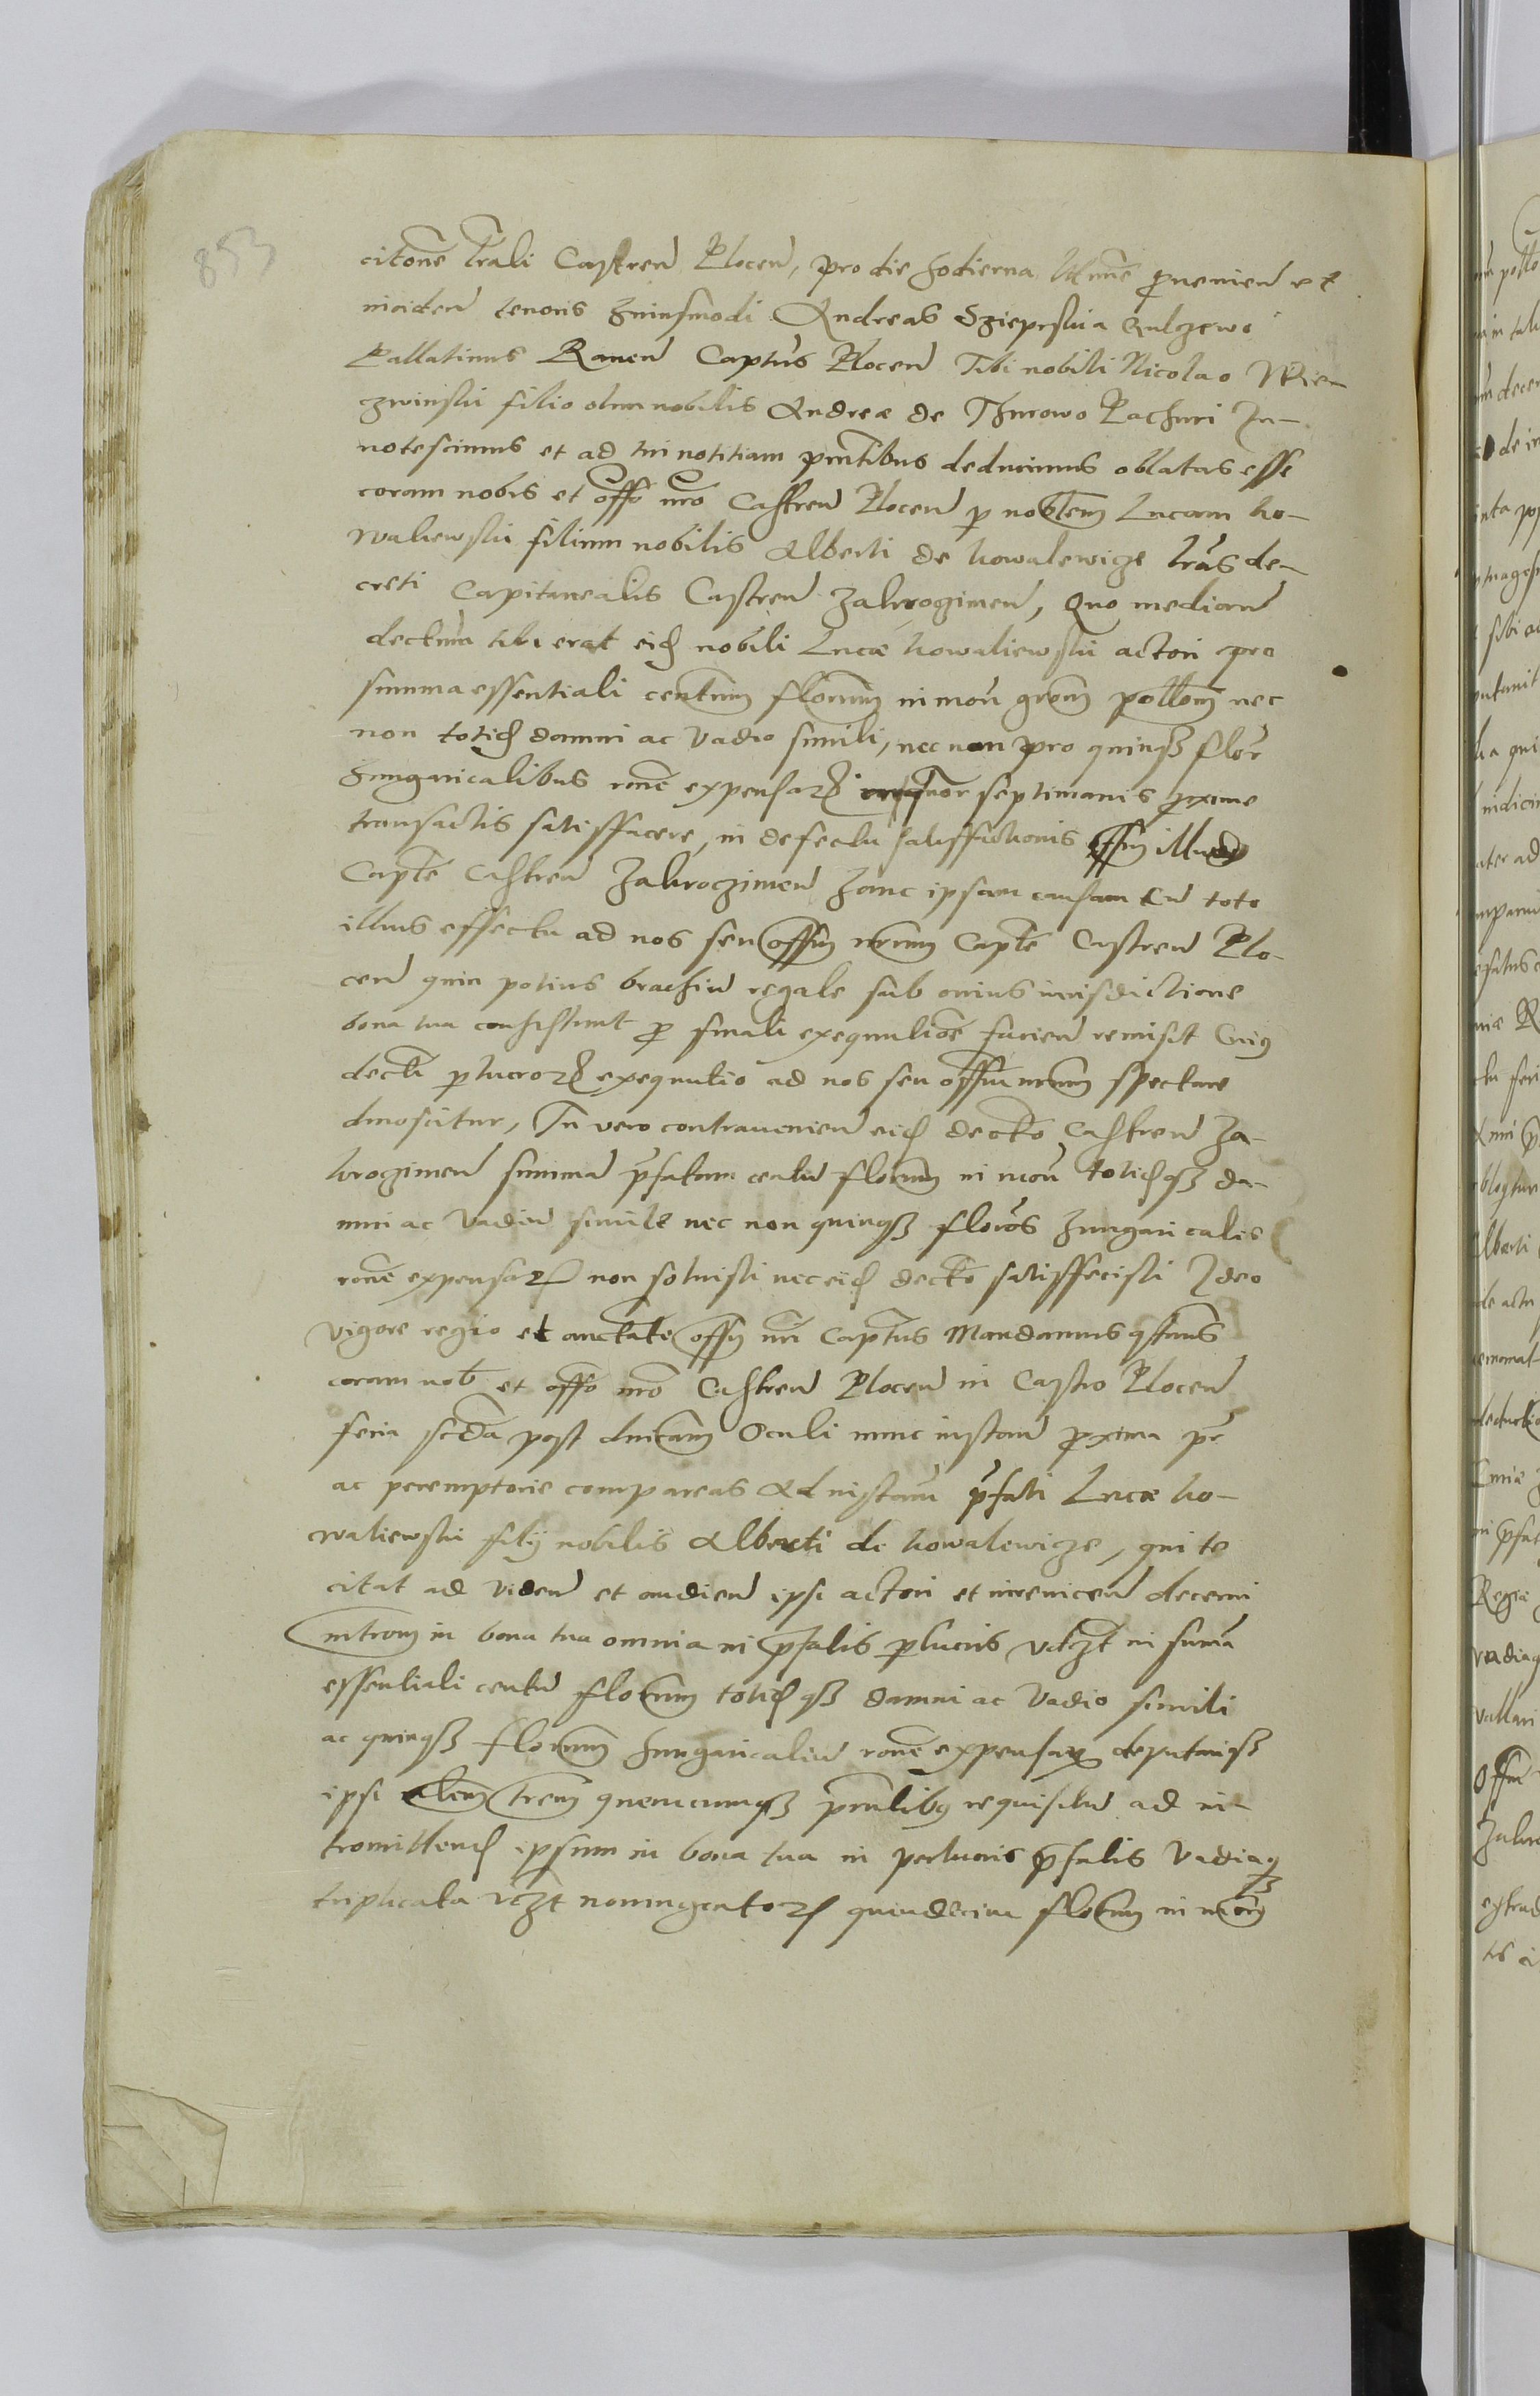 853
citone trali Castren Plocen, pro die hodierna ultime provenien et
inciden tenoris huiusmodi Andreas Szieprski a Gulczewo
Pallatinus Raven Captus Plocen Tibi nobili Nicolao Wie-
czwinski filio olim nobilis Andreæ de Thurowo Pachuri In-
notescimus et ad tui notitiam prntibus deducimus oblatas esse
coram nobis et offo nro Castren Plocen p nobilem Lucam ko-
waliewski filium nobilis Alberti de kowalewicze lras de-
creti Capitanealis Castren Zakrogimen, Quo median
dectum tibi erat eid nobili Lucæ kowaliewski actori pro
summa essentiali centum florum in mon grom pollom nec
non totid damni ac vadio simili, nec non pro quinqz flor
Hungaricalibus rone expensar in quatuor septimanis proxime
transactis satisffacere, in defectu satisffactionis offm illud
Capte Castren Zakroczimen hanc ipsam causam cu toto
illius effectu ad nos seu offm nrum Capte Castren Plo-
cen quin potius brachiu regale sub cuius iurisdictione
bona tua consistunt pro finali exequutioe facien remisit Cuius
decti p lucror exequutio ad nos seu offm nrum spectare
dinoscitur, Tu vero contravenien eid decto Castren Za-
krogimen summa prefatam centu florum in mon totidqz da-
mni ac vadiu simile nec non quinqz floros hungaricales
rone expensar non soluisti nec eid decto satisffecisti Ideo
vigore regio et auctate offy nri Captus Mandamus qtenus
coram nob et offo nro Castren Plocen in Castro Plocen
feria scda post dnicam Oculi nunc instan proxima pr
ac peremptorie compareas Ad instam prefati Lucæ ko-
waliewski filij nobilis Alberti de kowalewicze, qui te
citat ad viden et audien ipsi actori et inrenicen decerni
introm in bona tua omnia in prefatis p lucris vtczt in suma
essentiali centu florum totidqz damni ac vadio simili
ac quinqz florum hungaricaliu rone expensar deputariqz
ipsi alem trem quemcumqz prntibus requisitu ad in-
tromittend ipsum in bona tua in perlucris prefatis vadiaqz
triplicata vczt noningentor quindecim florum in mon